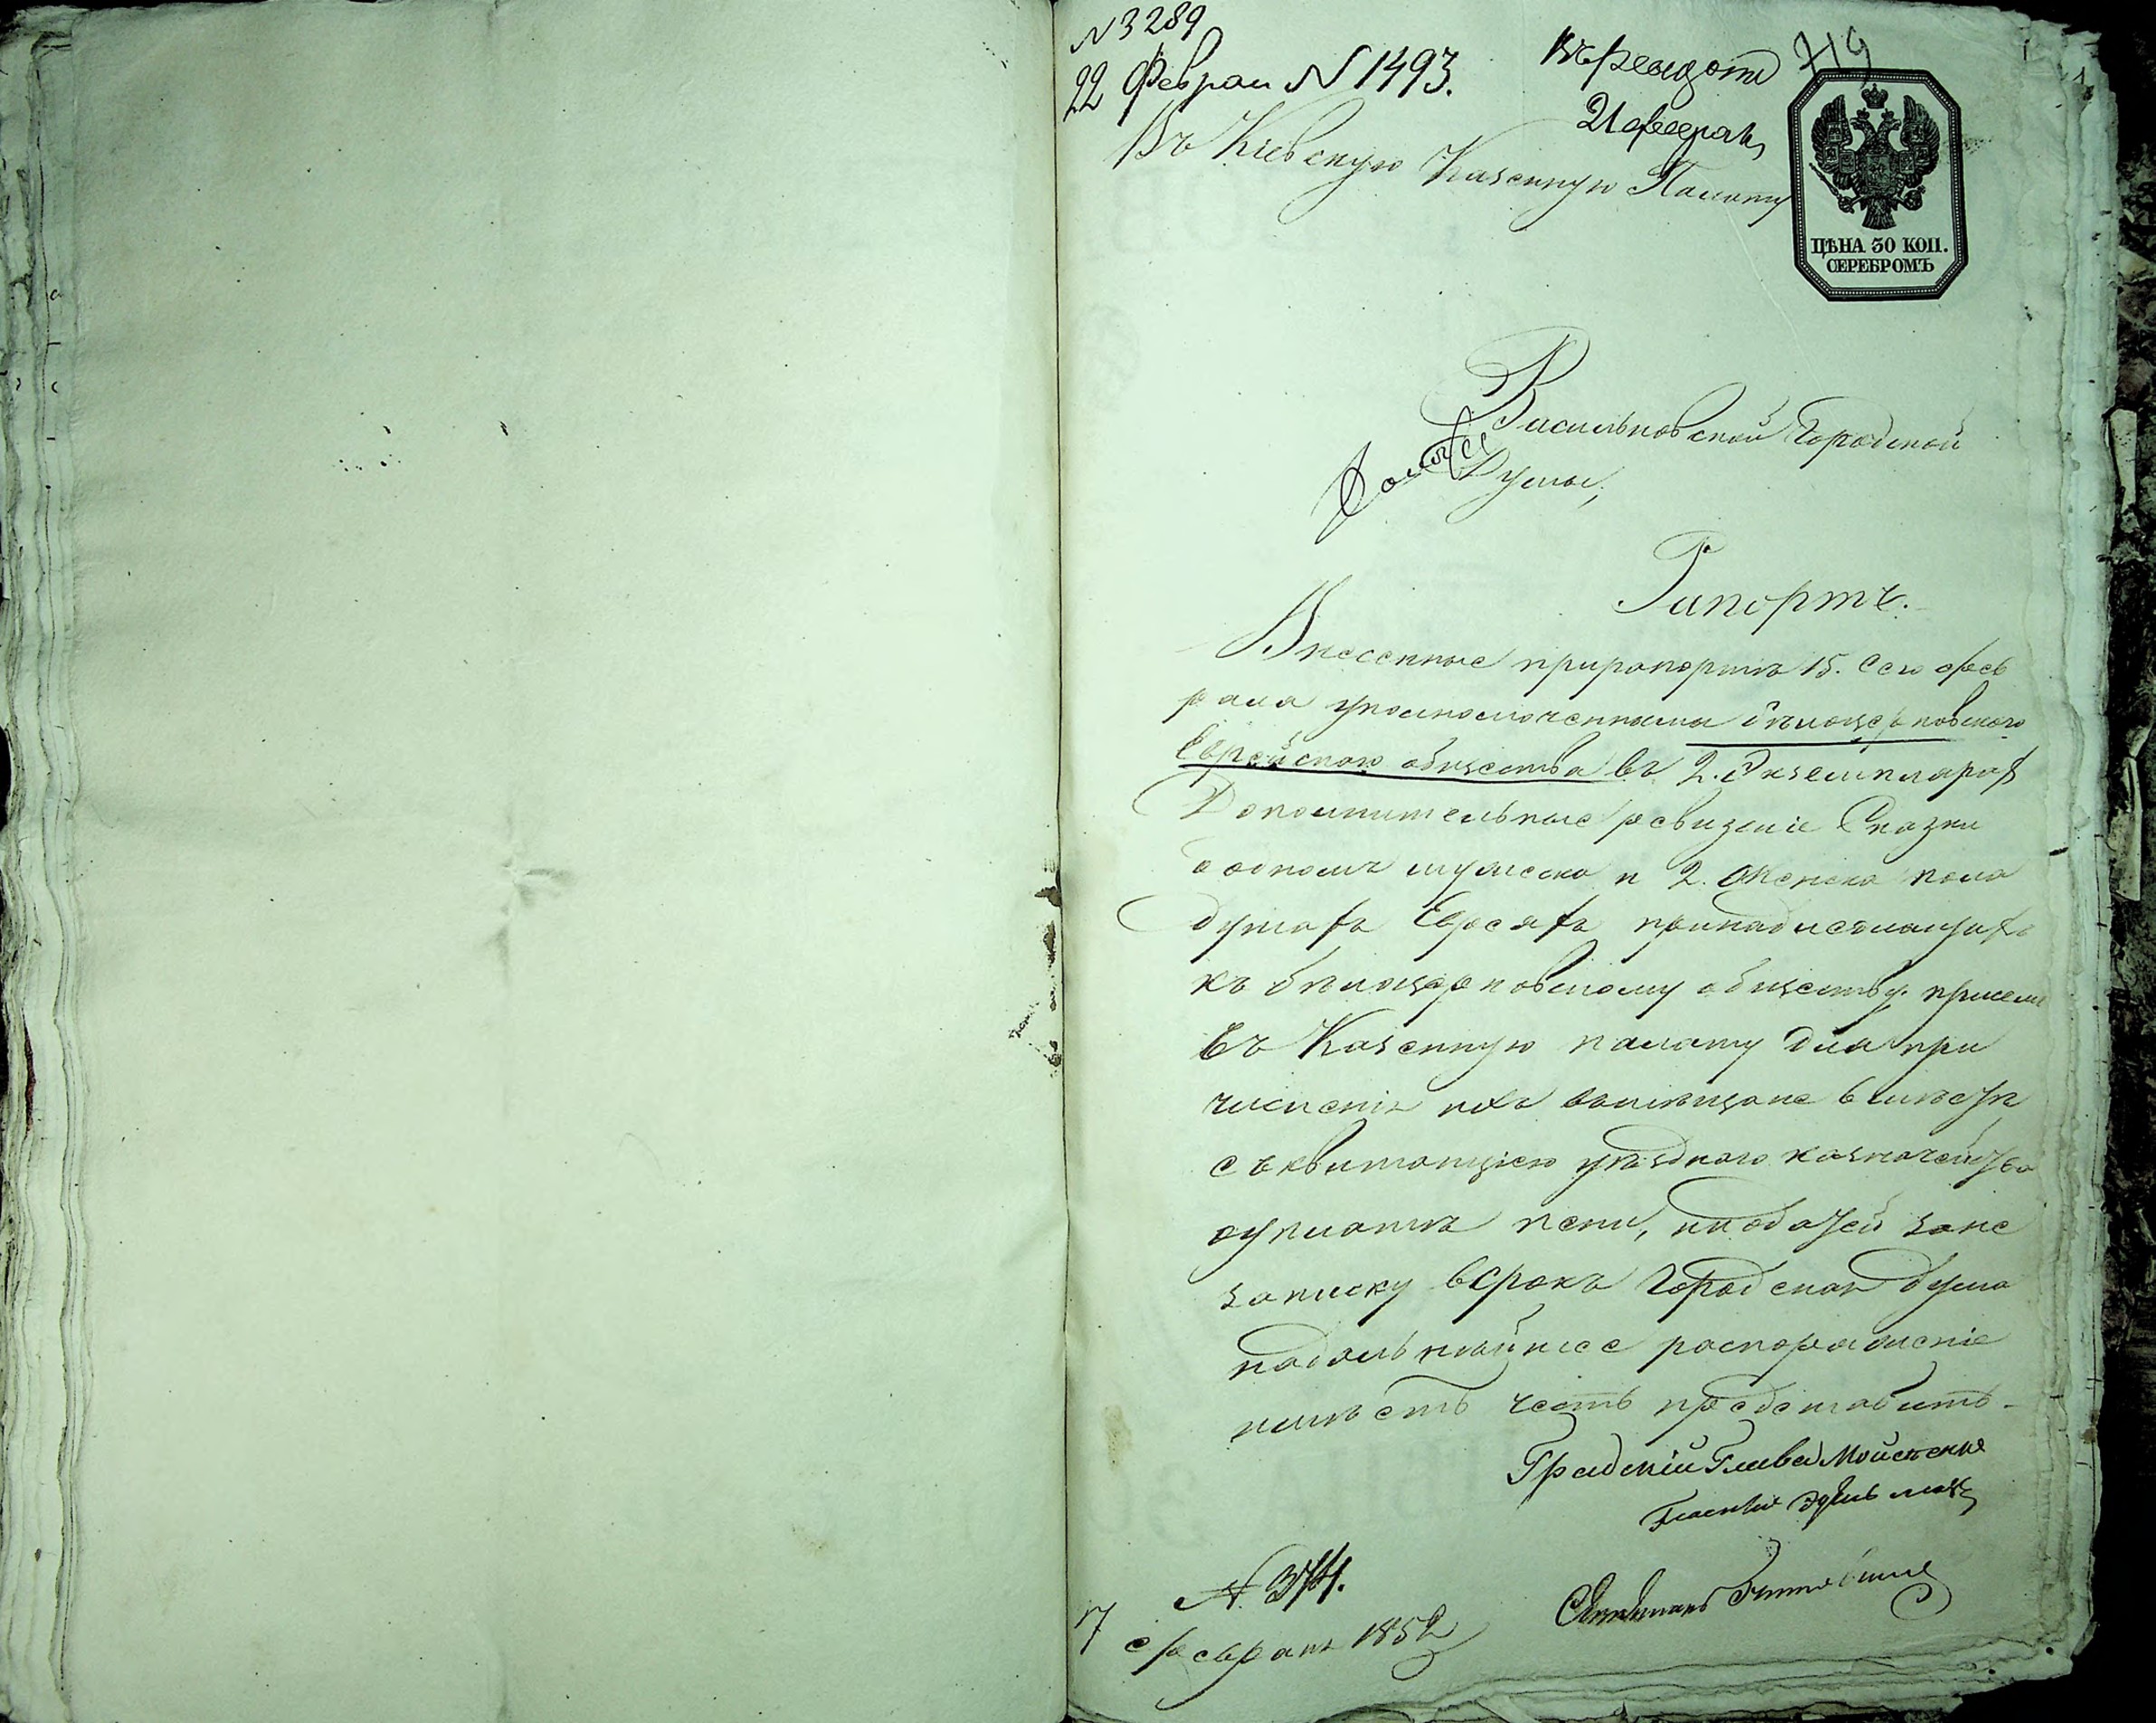 N 3289
22 Февраля N 1493.
719
21 февраля
Въ Кіевскую Казенную Палату
ЦѢНА 30 КОП.
СЕРЕБРОМЪ
Васильковской Городской
Думы,
Рапортъ.
Внесенные прирапортѣ 15. сего фев
раля уполномоченными бѣлоцерковского
Еврейского общества въ 2. Экземплярах
Дополнительные ревизскіе Сказки
о одномъ мужеска и 2. женска пола
душахъ Евреяхъ принадлежащихъ
къ бѣлоцерковскому обществу.
въ Казенную палату для при
численія ихъ вмѣстѣ
съ квитанціею уѣзднаго казначейства
оуплатѣ пени, зане
записку всрокъ Городская дума
надальнѣйшее распоряженіе
имѣетъ честь представить.
Градскій Глава
N. 374.
17 февраля 1852